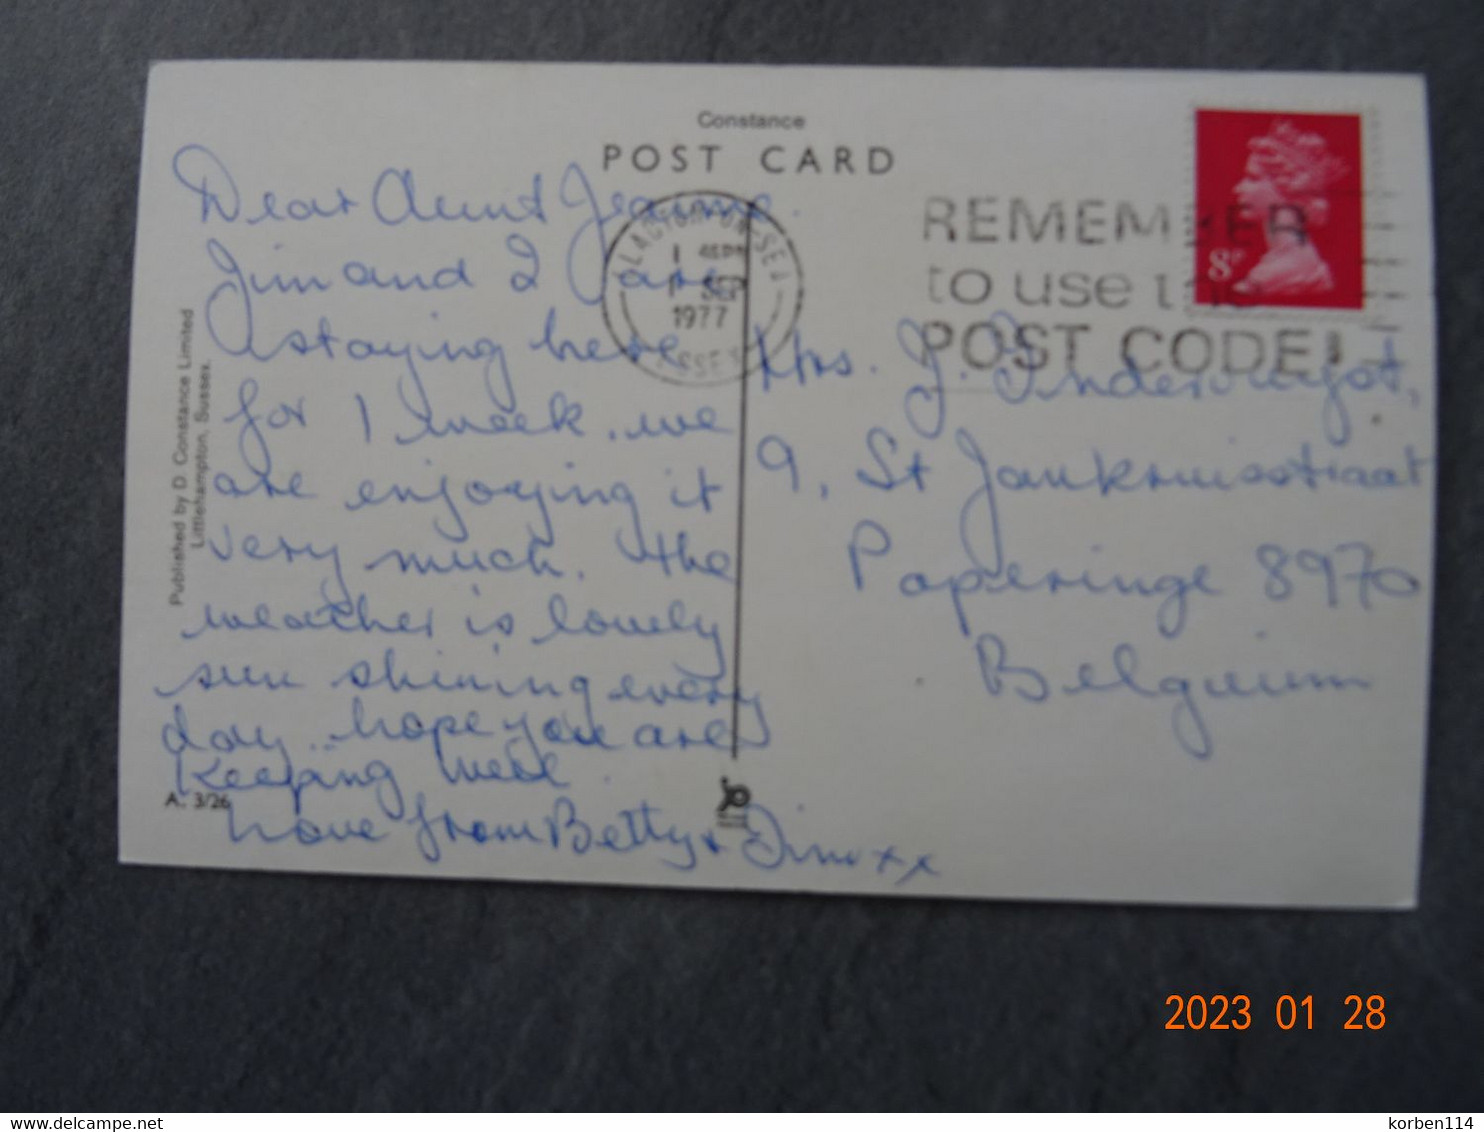 Constance
POST CARD
Dear Aunt Jeanne.
Jim and I are
staying here
for 1 week. we
are enjoying it
very much. the
weather is lovely
sun shining every
day.. hope you are
keeping well.
Love from Betty + Jim xx
Published by D. Constance Limited
Littlehampton, Sussex.
A. 3/26
CLACTON-ON-SEA
1 SEP
1977
ESSEX
REMEMBER
to use the
POST CODE!
8P
Mrs. J.
9, St Jankruisstraat
Poperinge 8970
Belguium
2023 01 28
delcampe.net
korben114